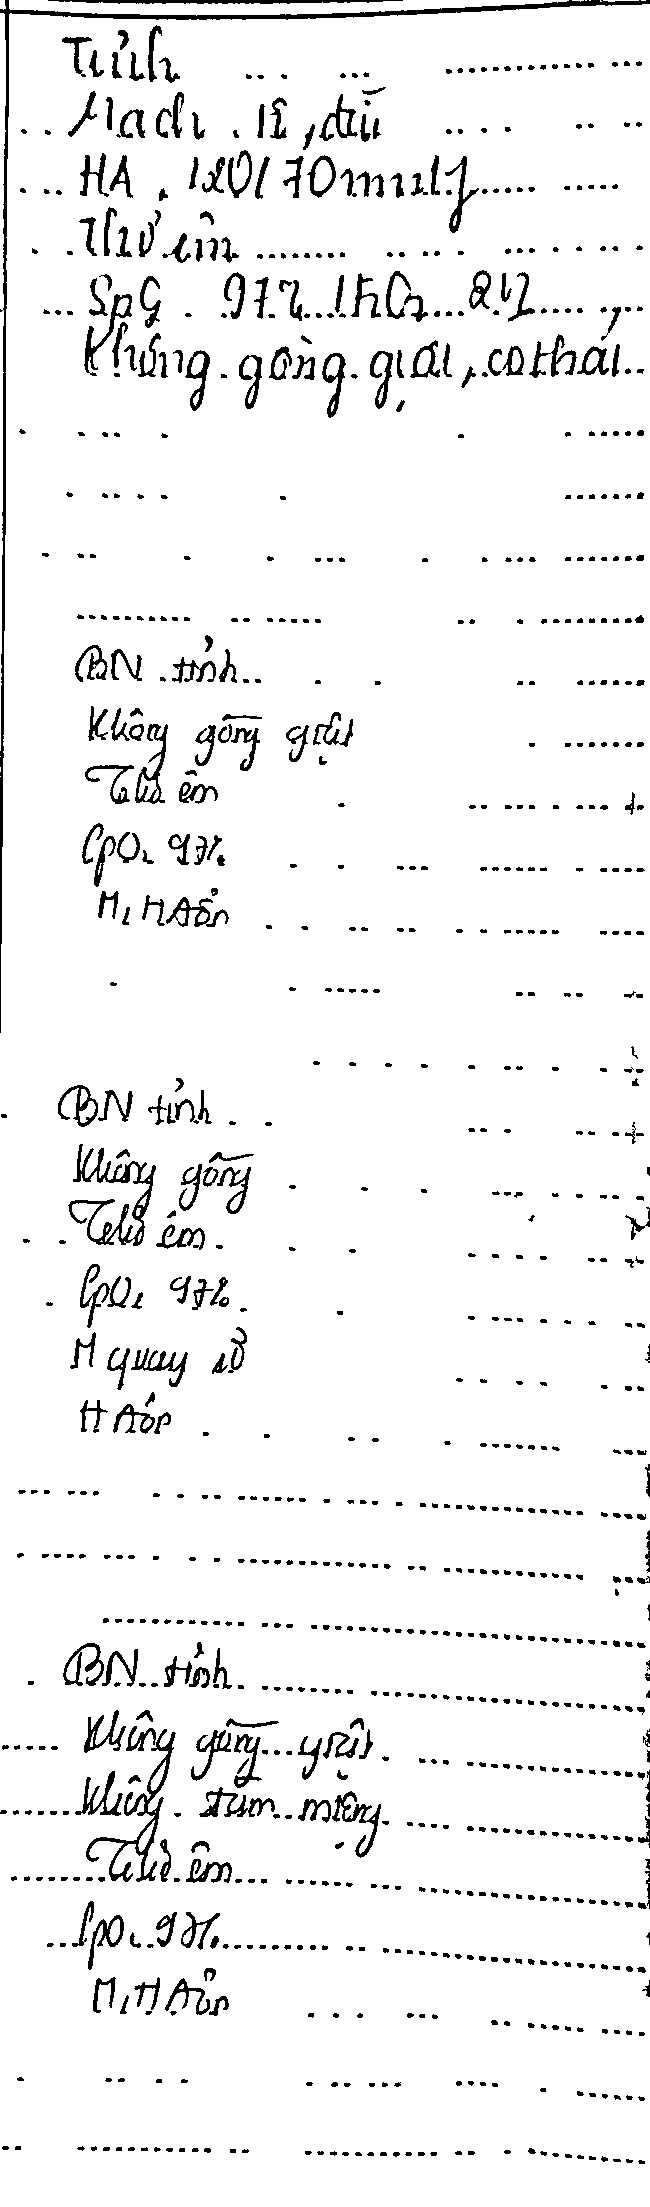 Tỉnh
Mạch rõ, đều
HA 120/70mmHg
Thở êm
SpO₂ 97%
Không gồng giật, co thắt
BN tỉnh
Không gồng giật
Thở êm
SpO₂ 97%
M, HA ổn
BN tỉnh
Không gồng
Thở êm
SpO₂ 97%
M quay rõ
HA ổn
BN tỉnh
Không gồng giật
Không túm miệng
Thở êm
SpO₂ 97%
M, HA ổn